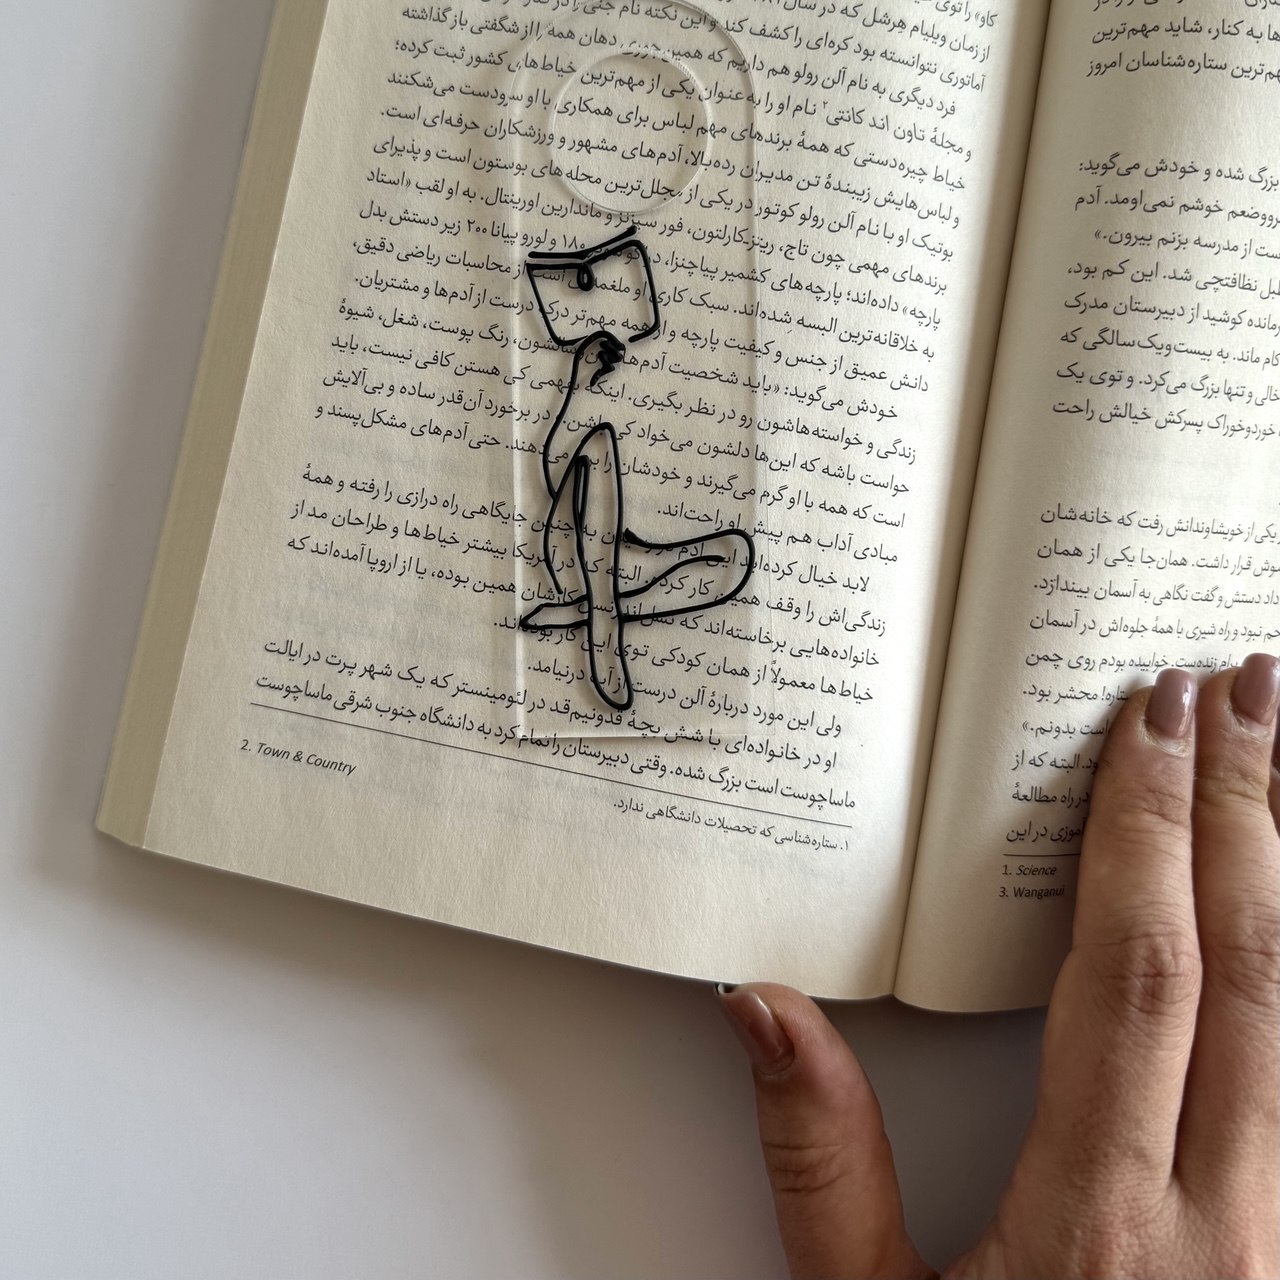 از زمان ویلیام هرشل که در سال
آماتوری نتوانسته بود کره‌ای را کشف کند و این نکته نام جنی را در
فرد دیگری به نام آلن رولو هم داریم که همین‌جوری دهان همه را از شگفتی باز گذاشته
و مجلهٔ تاون اند کانتی۲ نام او را به عنوان یکی از مهم‌ترین خیاط‌های کشور ثبت کرده؛
خیاط چیره‌دستی که همهٔ برندهای مهم لباس برای همکاری با او سرودست می‌شکنند
و لباس‌هایش زیبندهٔ تن مدیران رده‌بالا، آدم‌های مشهور و ورزشکاران حرفه‌ای است.
بوتیک او با نام آلن رولو کوتور در یکی از مجلل‌ترین محله‌های بوستون است و پذیرای
برندهای مهمی چون تاج، ریتز-کارلتون، فور سیزنز و ماندارین اورینتال. به او لقب «استاد
پارچه» داده‌اند؛ پارچه‌های کشمیر پیاچنزا، ۱۸۰ و لورو پیانا ۲۰۰ زیر دستش بدل
به خلاقانه‌ترین البسه شده‌اند. سبک کاری او از محاسبات ریاضی دقیق،
دانش عمیق از جنس و کیفیت پارچه و از همه مهم‌تر درک درست از آدم‌ها و مشتریان.
خودش می‌گوید: «باید شخصیت آدم‌ها، رنگ پوست، شغل، شیوهٔ
زندگی و خواسته‌هاشون رو در نظر بگیری. اینکه بفهمی کی هستن کافی نیست، باید
حواست باشه که این‌ها دلشون می‌خواد کی باشن.» در برخورد آن‌قدر ساده و بی‌آلایش
است که همه با او گرم می‌گیرند و خودشان را بروز می‌دهند. حتی آدم‌های مشکل‌پسند و
مبادی آداب هم پیش او راحت‌اند.
لابد خیال کرده‌اید این آدم به چنین جایگاهی راه درازی را رفته و همهٔ
زندگی‌اش را وقف همین کار کرده. البته که در آمریکا بیشتر خیاط‌ها و طراحان مد از
خانواده‌هایی برخاسته‌اند که نسل‌اندرنسل کارشان همین بوده، یا از اروپا آمده‌اند که
خیاط‌ها معمولاً از همان کودکی توی این کار بوده‌اند.
ولی این مورد دربارهٔ آلن درست از آب درنیامد.
او در خانواده‌ای با شش بچهٔ قدونیم‌قد در لئومینستر که یک شهر پرت در ایالت
ماساچوست است بزرگ شده. وقتی دبیرستان را تمام کرد به دانشگاه جنوب شرقی ماساچوست
۱. ستاره‌شناسی که تحصیلات دانشگاهی ندارد.
2. Town & Country
ها به کنار، شاید مهم‌ترین
مهم‌ترین ستاره‌شناسان امروز
بزرگ شده و خودش می‌گوید:
سرووضعم خوشم نمی‌اومد. آدم
است از مدرسه بزنم بیرون.»
طبل نظافتچی شد. این کم بود،
کوشید از دبیرستان مدرک
کام ماند. به بیست‌ویک‌سالگی که
خالی و تنها بزرگ می‌کرد. و توی یک
خوردوخوراک پسرکش خیالش راحت
یکی از خویشاوندانش رفت که خانه‌شان
قرار داشت. همان‌جا یکی از همان
داد دستش و گفت نگاهی به آسمان بیندازد.
نبود و راه شیری با همهٔ جلوه‌اش در آسمان
خوابیده بودم روی چمن
ستاره! محشر بود.
بدونم.»
البته که از
در راه مطالعهٔ
آموزی در این
1. Science
3. Wanganui